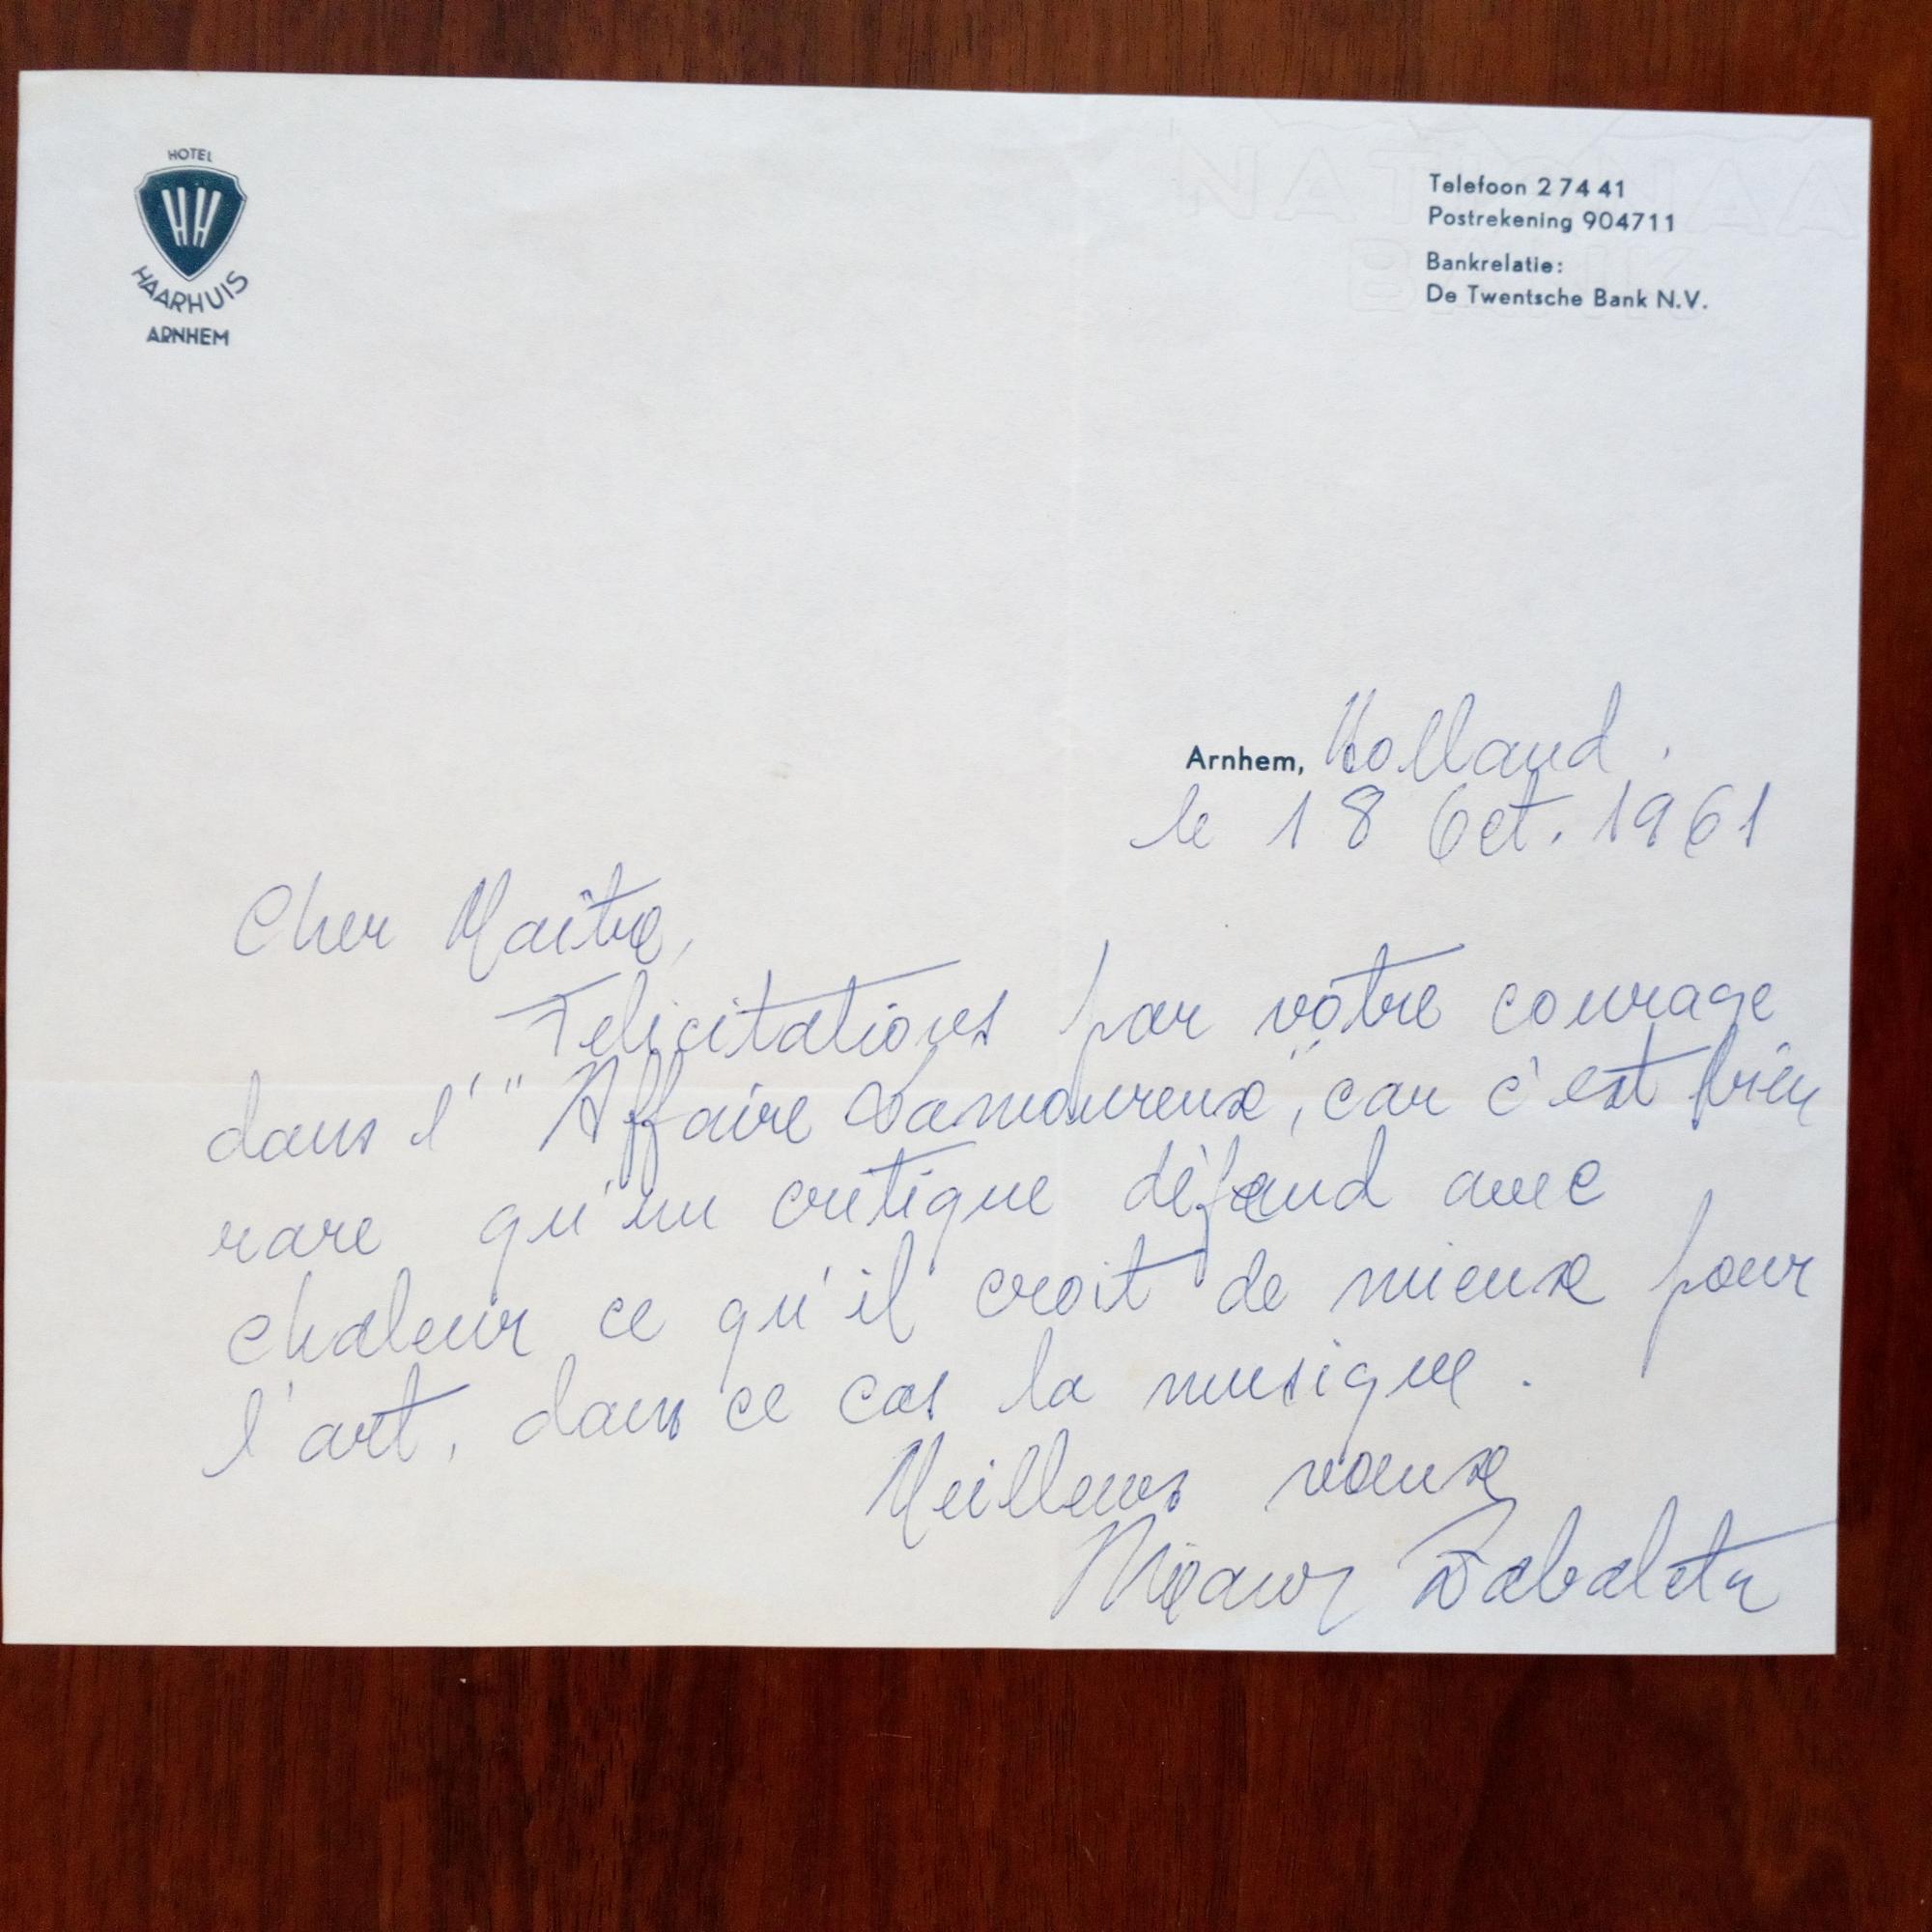 HOTEL
HH
HAARHUIS
ARNHEM
Telefoon 2 74 41
Postrekening 904711
Bankrelatie:
De Twentsche Bank N.V.
Arnhem, Holland.
le 18 Oct. 1961
Cher Maître,
Felicitations par vôtre courage
dans l'"Affaire Lamoureux", car c'est bien
rare qu'un critique défend avec
chaleur ce qu'il croit de mieux pour
l'art, dans ce cas la musique.
Meilleurs vœux
Nicanor Zabaleta